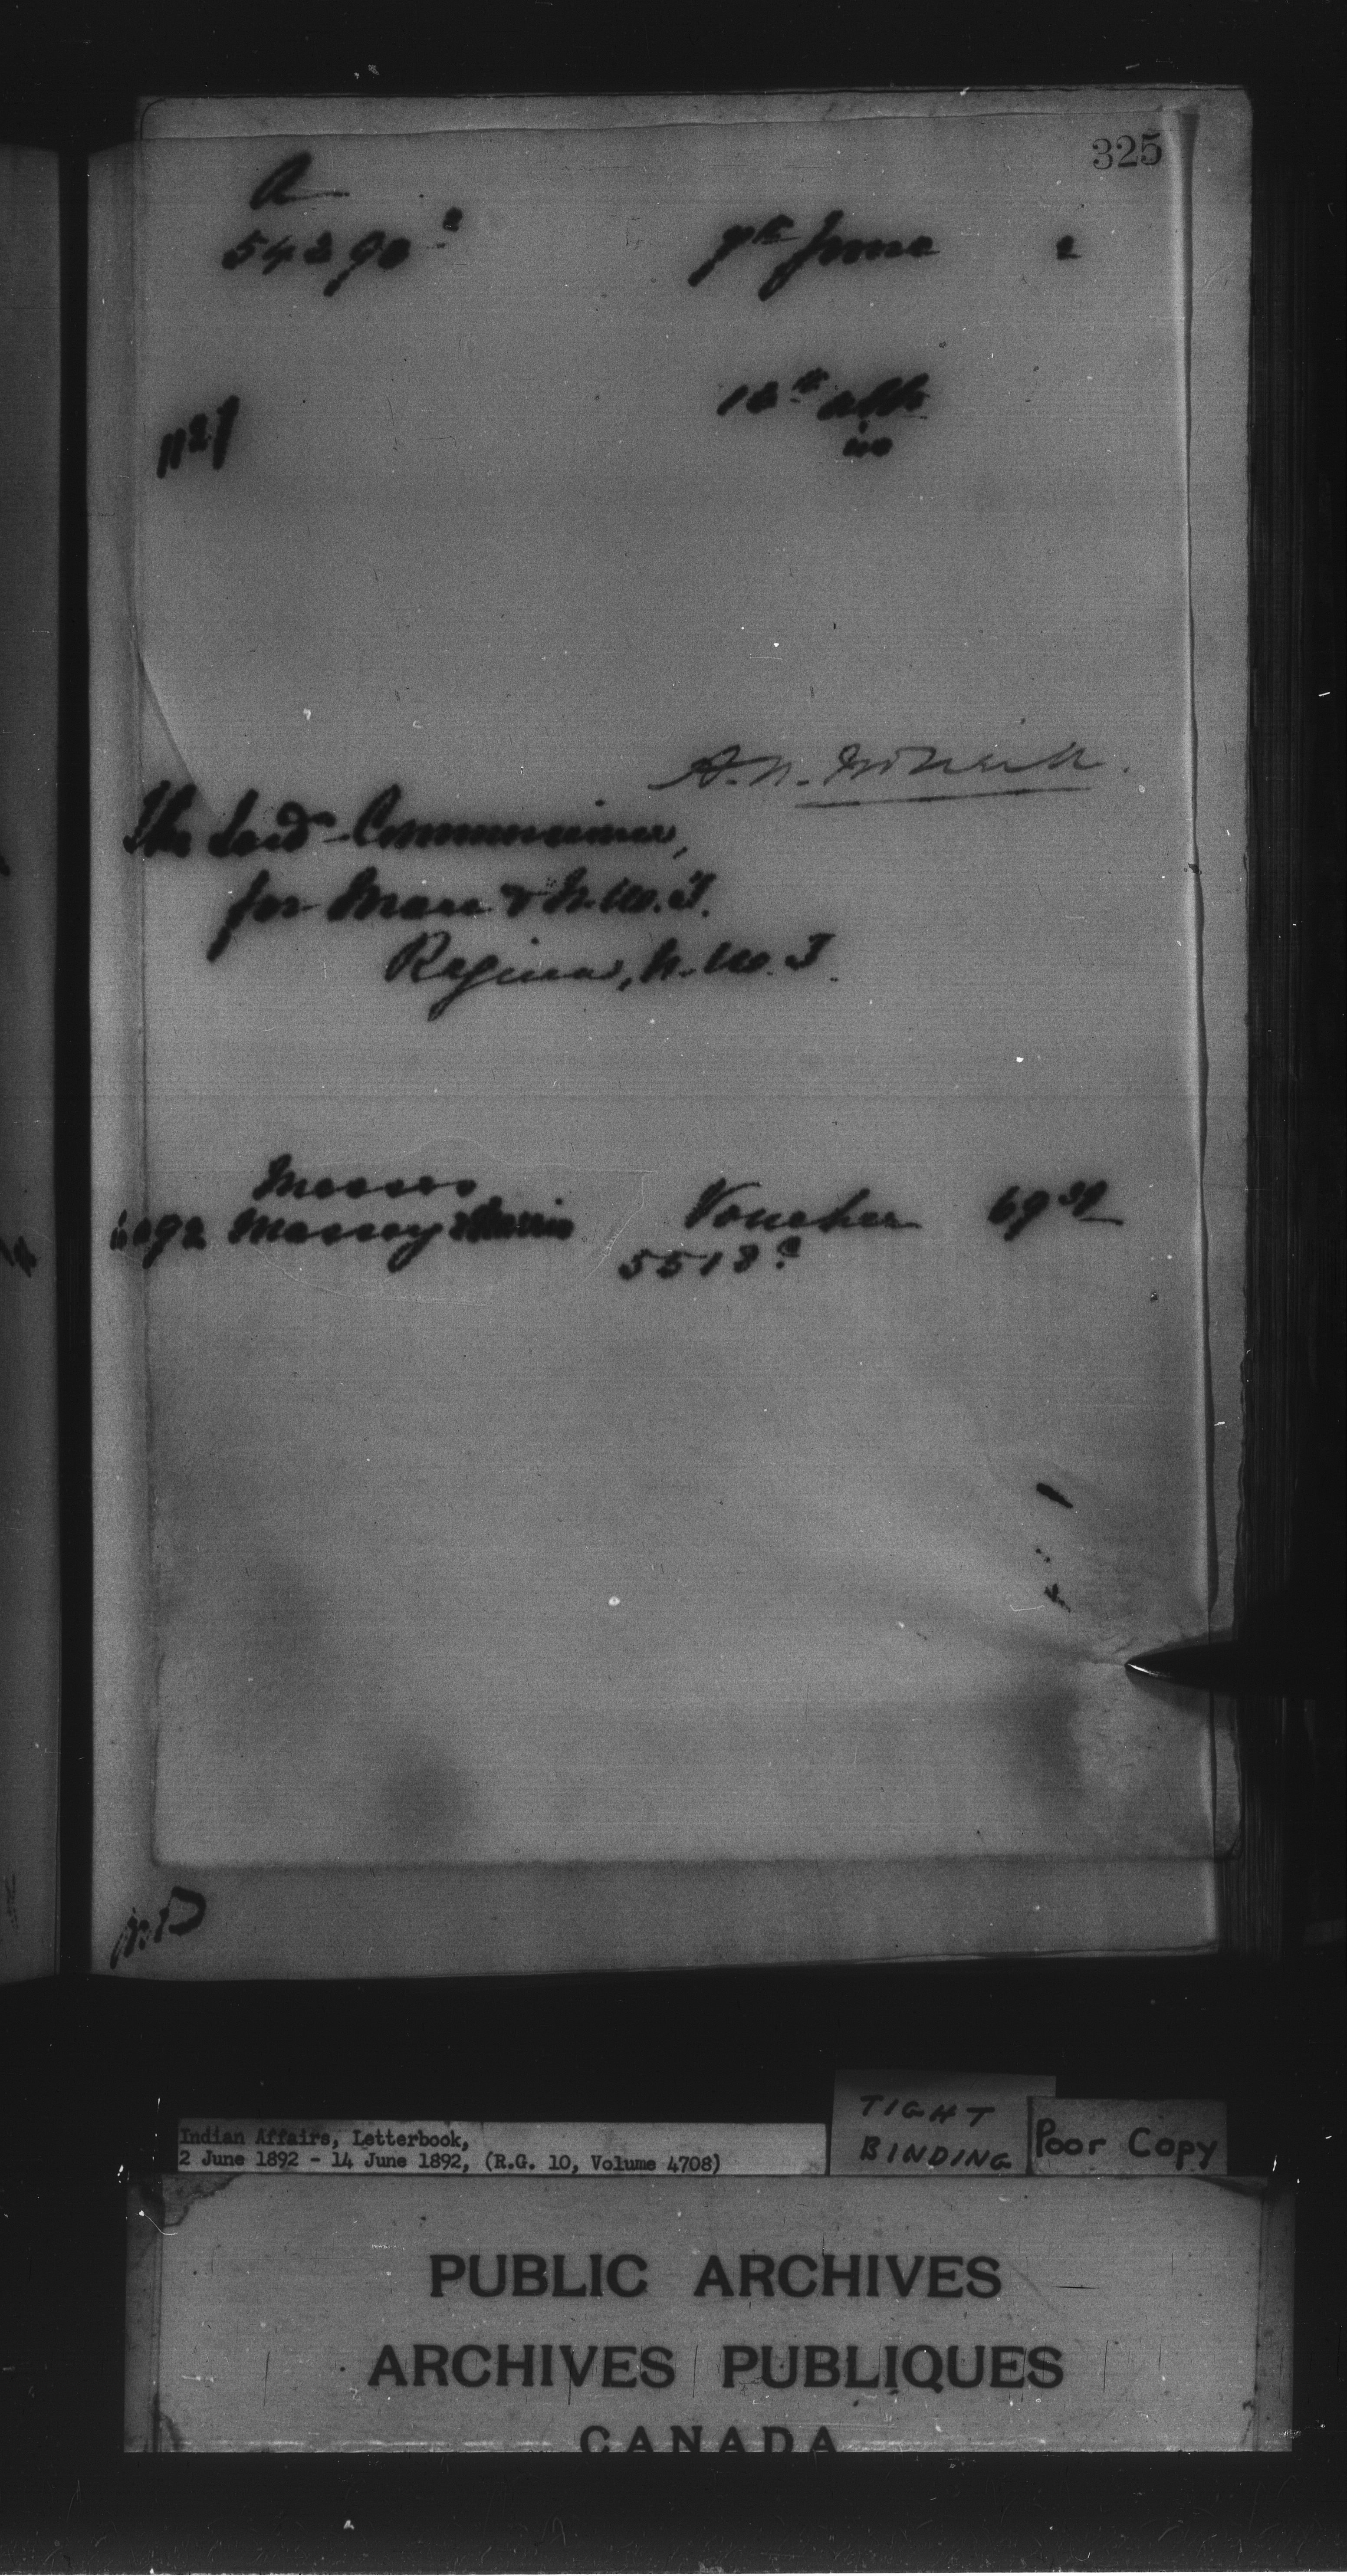 325
A
54290
7th June 2
18th ulto
1121
The Ind. Commissioner,
for Man & N.W.T.
Regina, N.W.T.
Messrs
Massey Harris Voucher 69
5518
Indian Affairs, Letterbook,
2 June 1892 - 14 June 1892, (R.G. 10, Volume 4708)
TIGHT
BINDING
Poor Copy
PUBLIC ARCHIVES
ARCHIVES PUBLIQUES
CANADA